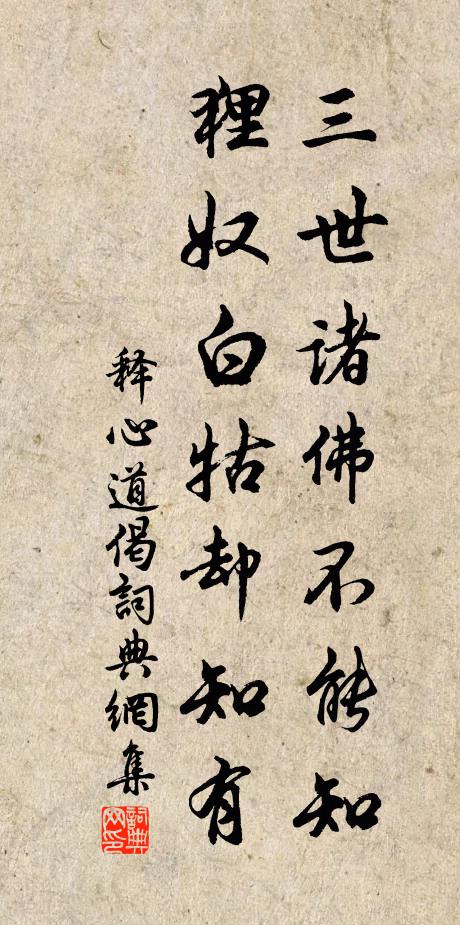 三世诸佛不能知
狸奴白牯却知有
释心道偈詞典網集
詞典網印